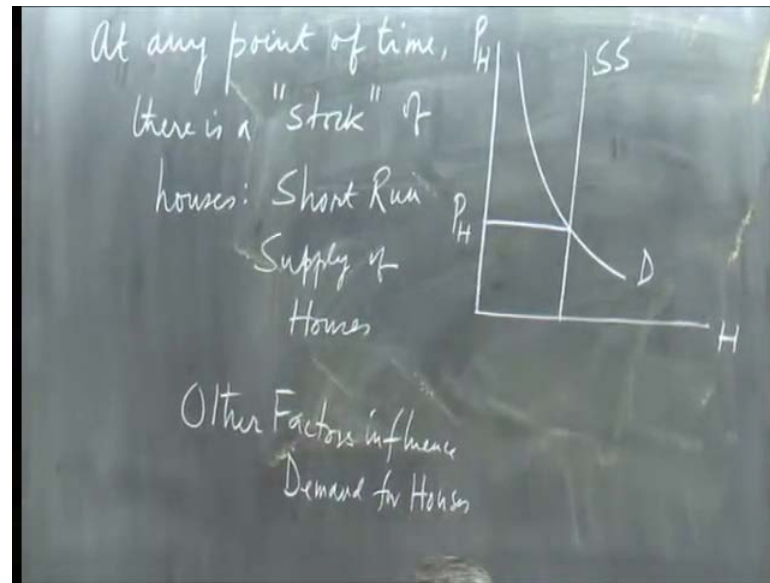 At any point of time,
there is a "stock" of
houses: Short Run
Supply of
Houses
Other Factors influence
Demand for Houses
P_H
SS
P_H
D
H